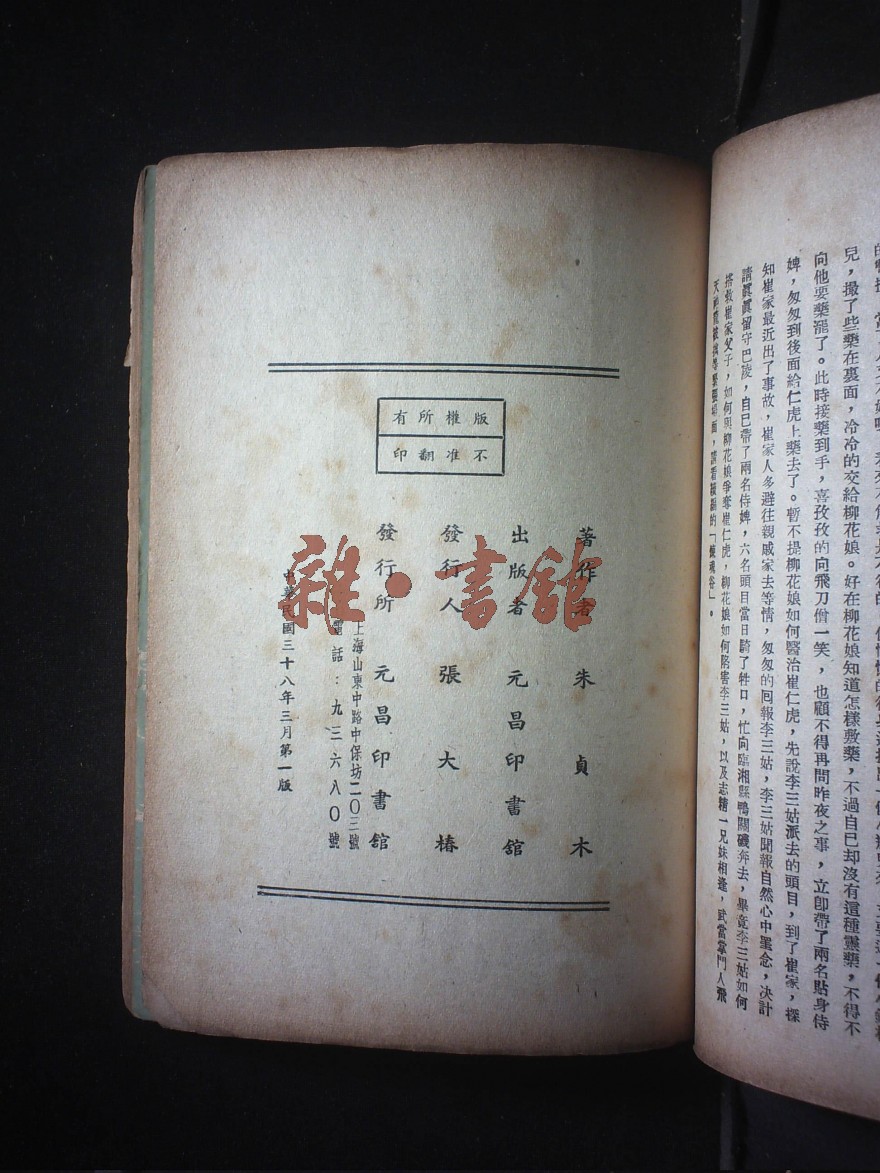 兒，撮了些藥在裏面，冷冷的交給柳花娘。好在柳花娘知道怎樣敷藥，不過自己却沒有這種靈藥，不得不
向他要藥罷了。此時接藥到手，喜孜孜的向飛刀僧一笑，也顧不得再問昨夜之事，立卽帶了兩名貼身侍
婢，匆匆到後面給仁虎上藥去了。暫不提柳花娘如何醫治崔仁虎，先說李三姑派去的頭目，到了崔家，探
知崔家最近出了事故，崔家人多避往親戚家去等情，匆匆的囘報李三姑，李三姑聞報自然心中罣念，决計
請眞眞留守巴陵，自已帶了兩名侍婢，六名頭目當日騎了牲口，忙向臨湘縣鴨關磯奔去，畢竟李三姑如何
搭救崔家父子，如何與柳花娘爭奪崔仁虎，柳花娘如何陷害李三姑，以及志精一兄妹相逢，武當掌門人飛
版權所有
不准翻印
著作者 朱貞木
出版者 元昌印書館
發行人 張大椿
發行所 元昌印書館
上海山東中路中保坊二〇三號
電話：九三六八〇號
中華民國三十八年三月第一版
雜·書館